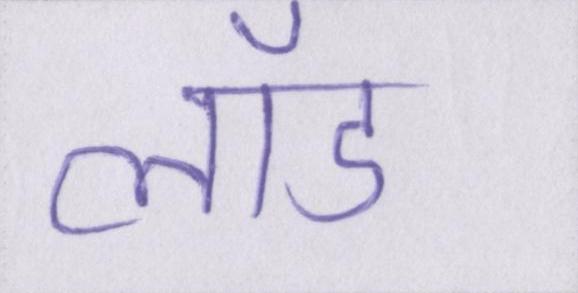 लॉड